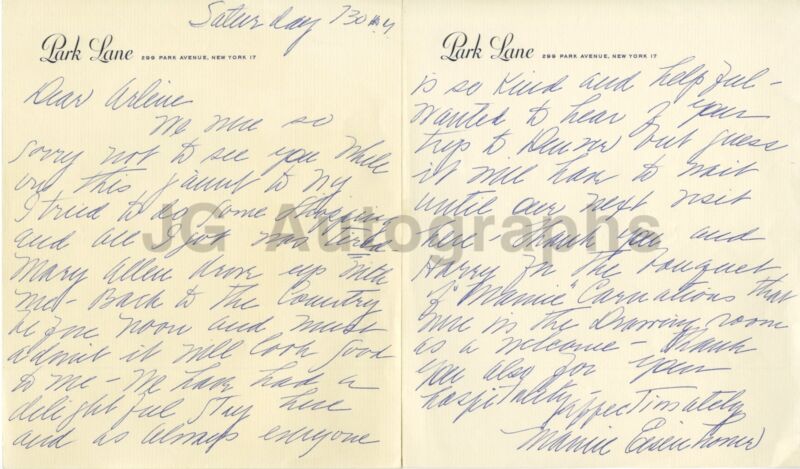 Saturday 730 A.M
Park Lane 299 PARK AVENUE, NEW YORK 17
Dear Arlene
We were so
sorry not to see you while
on this jaunt to NY
I tried to do some shopping
and all I got was tired
Mary Allen drove up with
me - Back to the Country
before noon and must
admit it will look good
to me - We have had a
delightful stay here
and as always everyone
Park Lane 299 PARK AVENUE, NEW YORK 17
is so kind and helpful -
Wanted to hear of your
trip to Denver but guess
it will have to wait
until our next visit
here - Thank you and
Harry for the bouquet
of "Mamie" Carnations that
were in the Drawing room
as a welcome - Thank
you also for your
hospitality
Affectionately
Mamie Eisenhower
JG Autographs